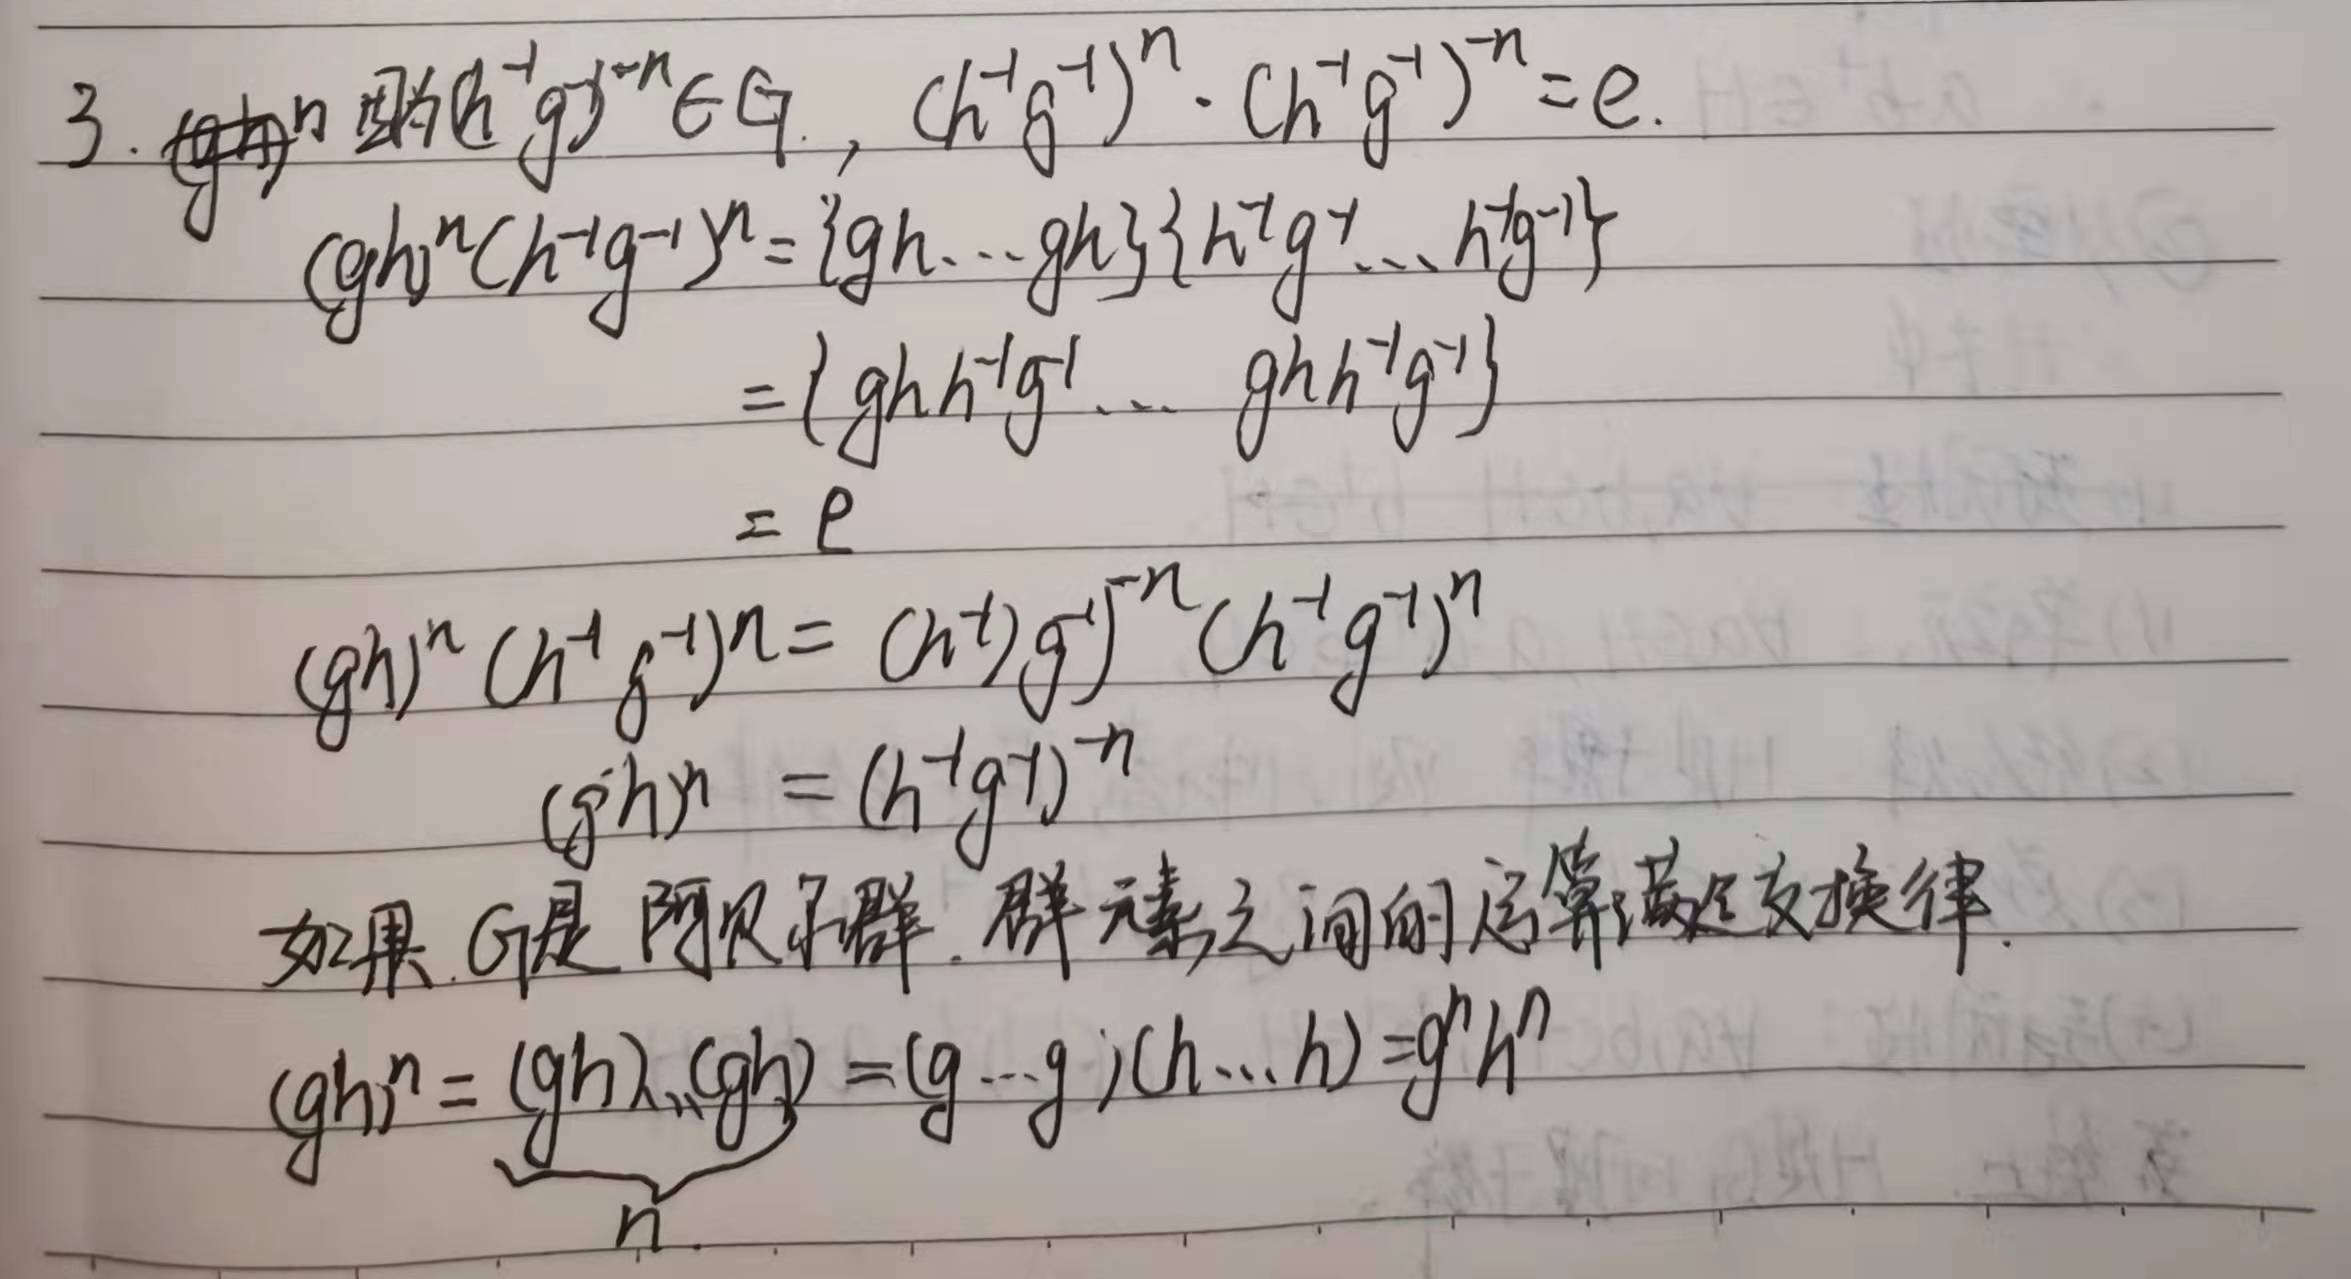 3. (gh)ⁿ 因为(h⁻¹g⁻¹)⁻ⁿ∈G., (h⁻¹g⁻¹)ⁿ·(h⁻¹g⁻¹)⁻ⁿ=e.
(gh)ⁿ(h⁻¹g⁻¹)ⁿ={gh...gh}{h⁻¹g⁻¹...h⁻¹g⁻¹}
={ghh⁻¹g⁻¹... ghh⁻¹g⁻¹}
= e
(gh)ⁿ(h⁻¹g⁻¹)ⁿ= (h⁻¹)g⁻¹)⁻ⁿ(h⁻¹g⁻¹)ⁿ
(gh)ⁿ = (h⁻¹g⁻¹)⁻ⁿ
如果.G是阿贝尔群.群元素之间的运算满足交换律.
(gh)ⁿ=(gh)...(gh)=(g...g)(h...h)=gⁿhⁿ
n.